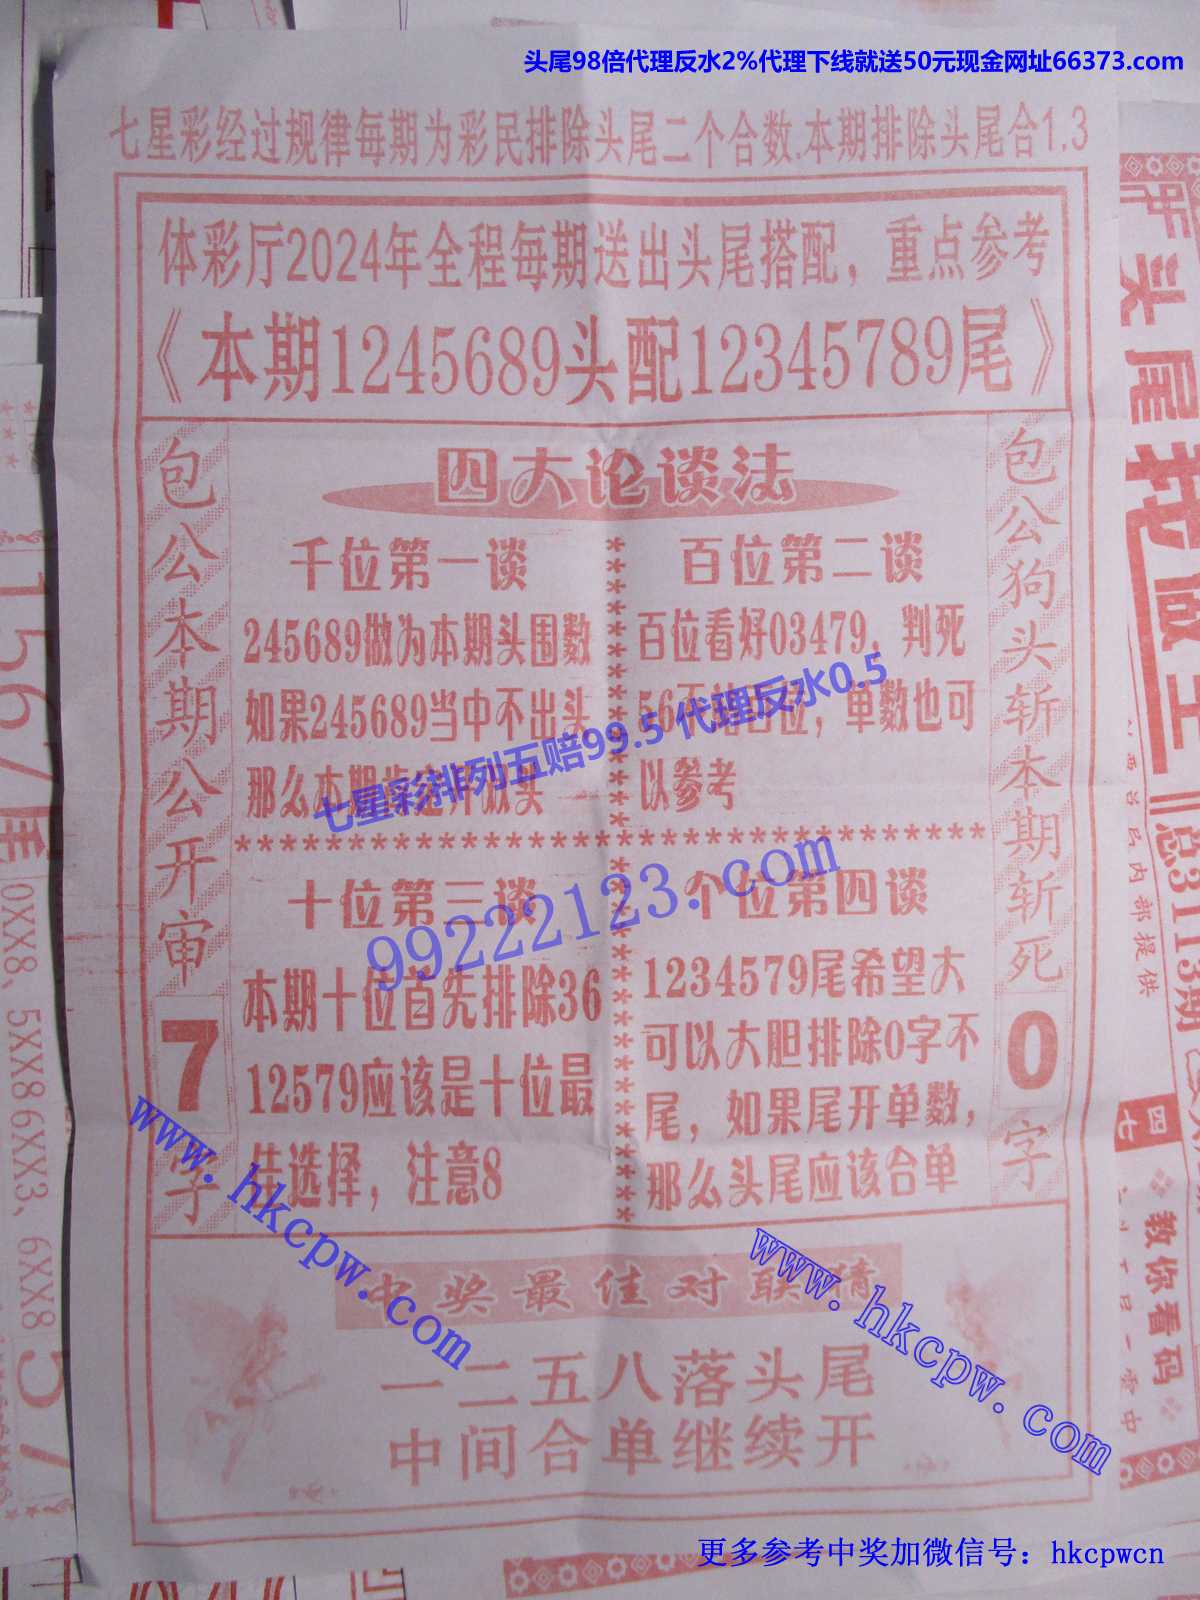 头尾98倍代理反水2%代理下线就送50元现金网址66373.com
七星彩经过规律每期为彩民排除头尾二个合数.本期排除头尾合1.3
体彩厅2024年全程每期送出头尾搭配，重点参考
《本期1245689头配12345789尾》
包公本期公开审
7
字
四大论谈法
千位第一谈
245689做为本期头围数
如果245689当中不出头
那么本期
百位第二谈
百位看好03479，判死
56不
位，单数也可
以参考
七星彩排列五赔99.5 代理反水0.5
99222123.com
十位第三谈
本期十位首先排除36
12579应该是十位最
佳选择，注意8
个位第四谈
1234579尾希望大
可以大胆排除0字不
尾，如果尾开单数，
那么头尾应该合单
包公狗头斩本期斩死
0
字
www.hkcpw.com
www.hkcpw.com
中奖最佳对联猜
一二五八落头尾
中间合单继续开
更多参考中奖加微信号：hkcpwcn
1567尾
0XX8、5XX86XX3、6XX8
头尾我做主
内部提供
四七
教你看码